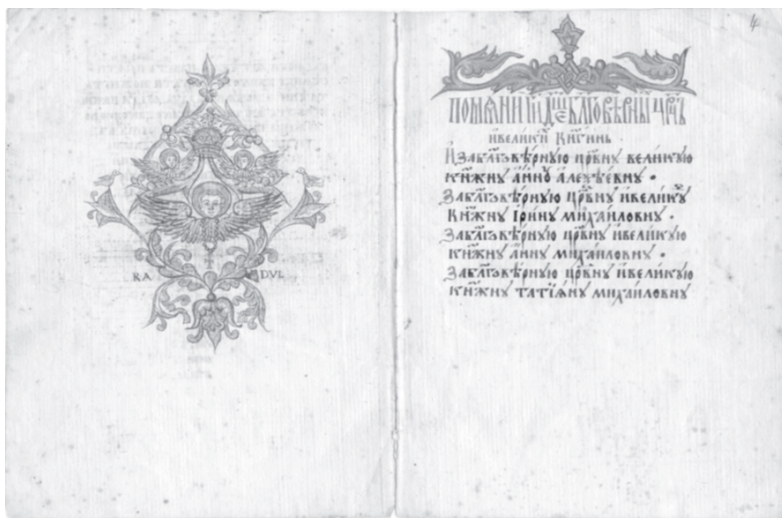 КА DVL
4
ПОМѦНИ Г҃И Д҃ШЕ БЛ҃ГОВѢРНЫ ЦР҃Ч
ивелики кнѧгинь .
И за благовѣрную цр҃вну великую
кнѧжну анну алеѯѣевну .
За благовѣрную цр҃вну ивелику
кнѧжну ірину михаиловну .
За благовѣрную цр҃вну ивеликую
кнѧжну анну михаиловну .
За благовѣрную цр҃вну ивеликую
кнѧжну татіѧну михаиловну